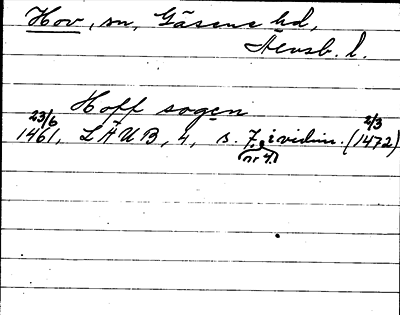 Hov, sn, Gäsene hd,
Älvsb. l.
Hoff sogen
23/6 1461, LÄUB, 4, s. 7, i vidim. (2/3 1472)
nr 4.